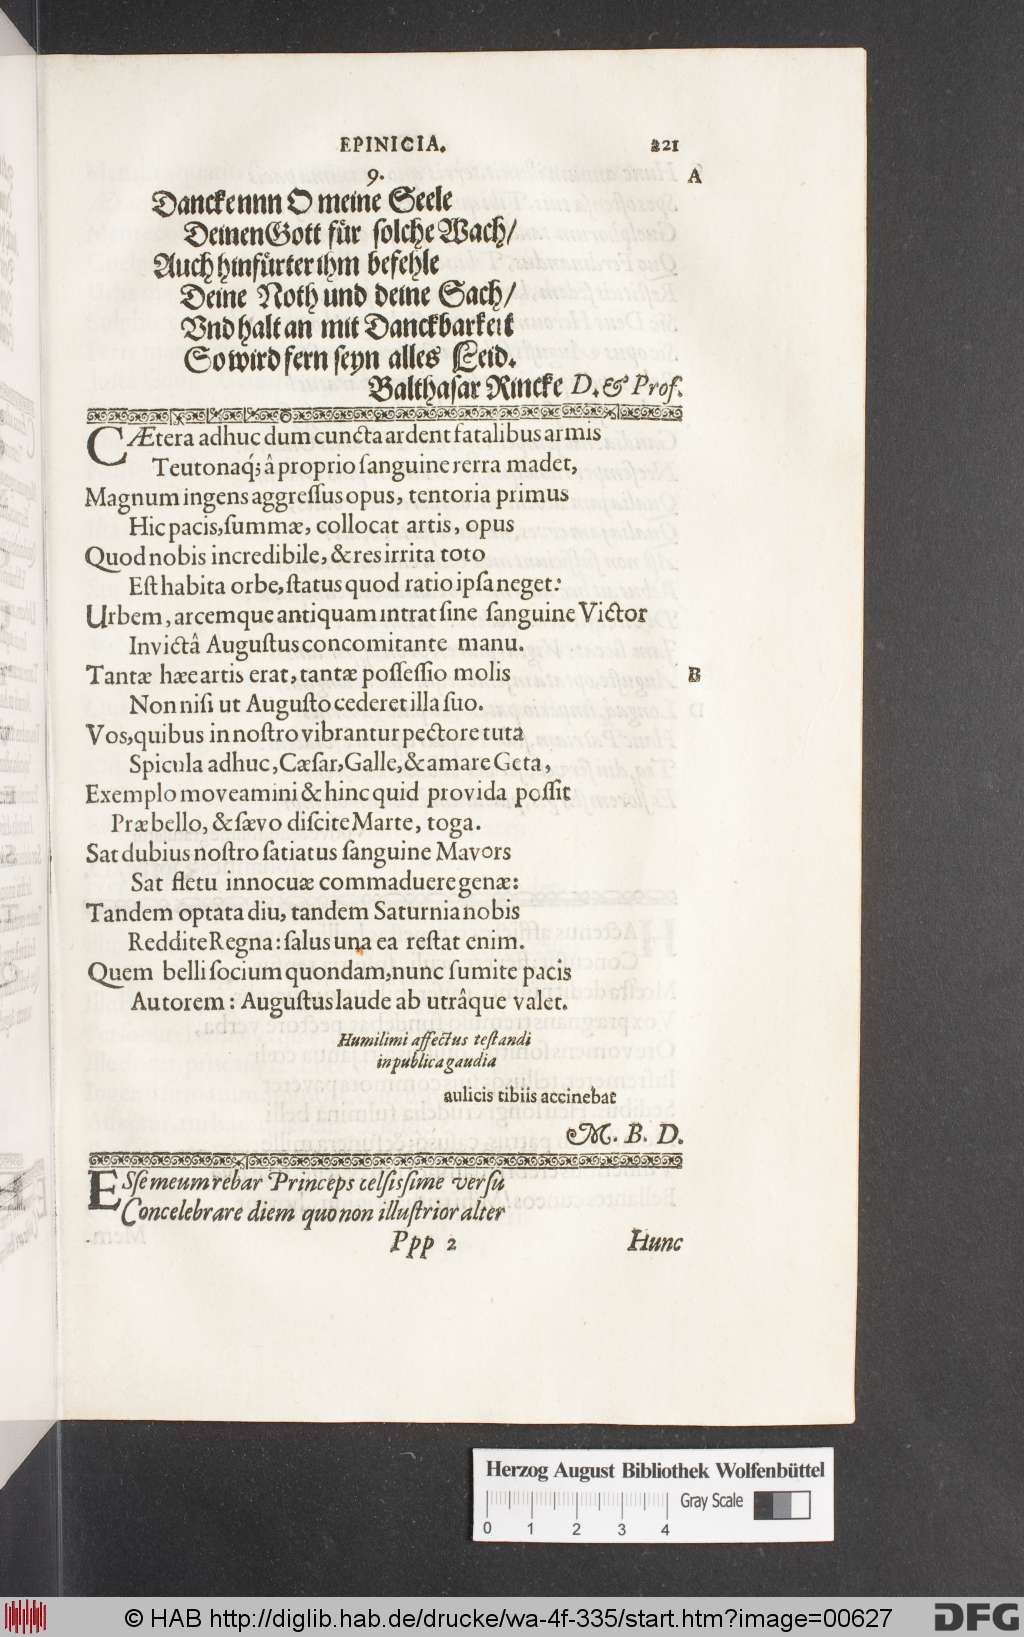 EPINICIA. 221
9. A
Dancke nnn O meine Seele
Deinen Gott fůr solche Wach/
Auch hinfůrter ihm befehle
Deine Noth und deine Sach/
Vnd halt an mit Danckbarkeit
So wird fern seyn alles Leid.
Balthasar Rincke D. & Prof.
CÆtera adhuc dum cuncta ardent fatalibus armis
Teutonaq́; â proprio ſanguine rerra madet,
Magnum ingens aggreſſus opus, tentoria primus
Hic pacis, ſummæ, collocat artis, opus
Quod nobis incredibile, & res irrita toto
Eſt habita orbe, ſtatus quod ratio ipſa neget:
Urbem, arcemque antiquam intrat ſine ſanguine Victor
Invictâ Auguſtus concomitante manu.
Tantæ hæe artis erat, tantæ poſſeſſio molis B
Non niſi ut Auguſto cederet illa ſuo.
Vos, quibus in noſtro vibrantur pectore tuta
Spicula adhuc, Cæſar, Galle, & amare Geta,
Exemplo moveamini & hinc quid provida poſſit
Præ bello, & ſævo diſcite Marte, toga.
Sat dubius noſtro ſatiatus ſanguine Mavors
Sat fletu innocuæ commaduere genæ:
Tandem optata diu, tandem Saturnia nobis
Reddite Regna: ſalus una ea reſtat enim.
Quem belli ſocium quondam, nunc ſumite pacis
Autorem: Auguſtus laude ab utrâque valet.
Humilimi affectus teſtandi
in publica gaudia
aulicis tibiis accinebat
M. B. D.
ESſe meum rebar Princeps celſiſsime verſu
Concelebrare diem quo non illuſtrior alter
Ppp 2 Hunc
Herzog August Bibliothek Wolfenbüttel
Gray Scale
0 1 2 3 4
© HAB http://diglib.hab.de/drucke/wa-4f-335/start.htm?image=00627
DFG